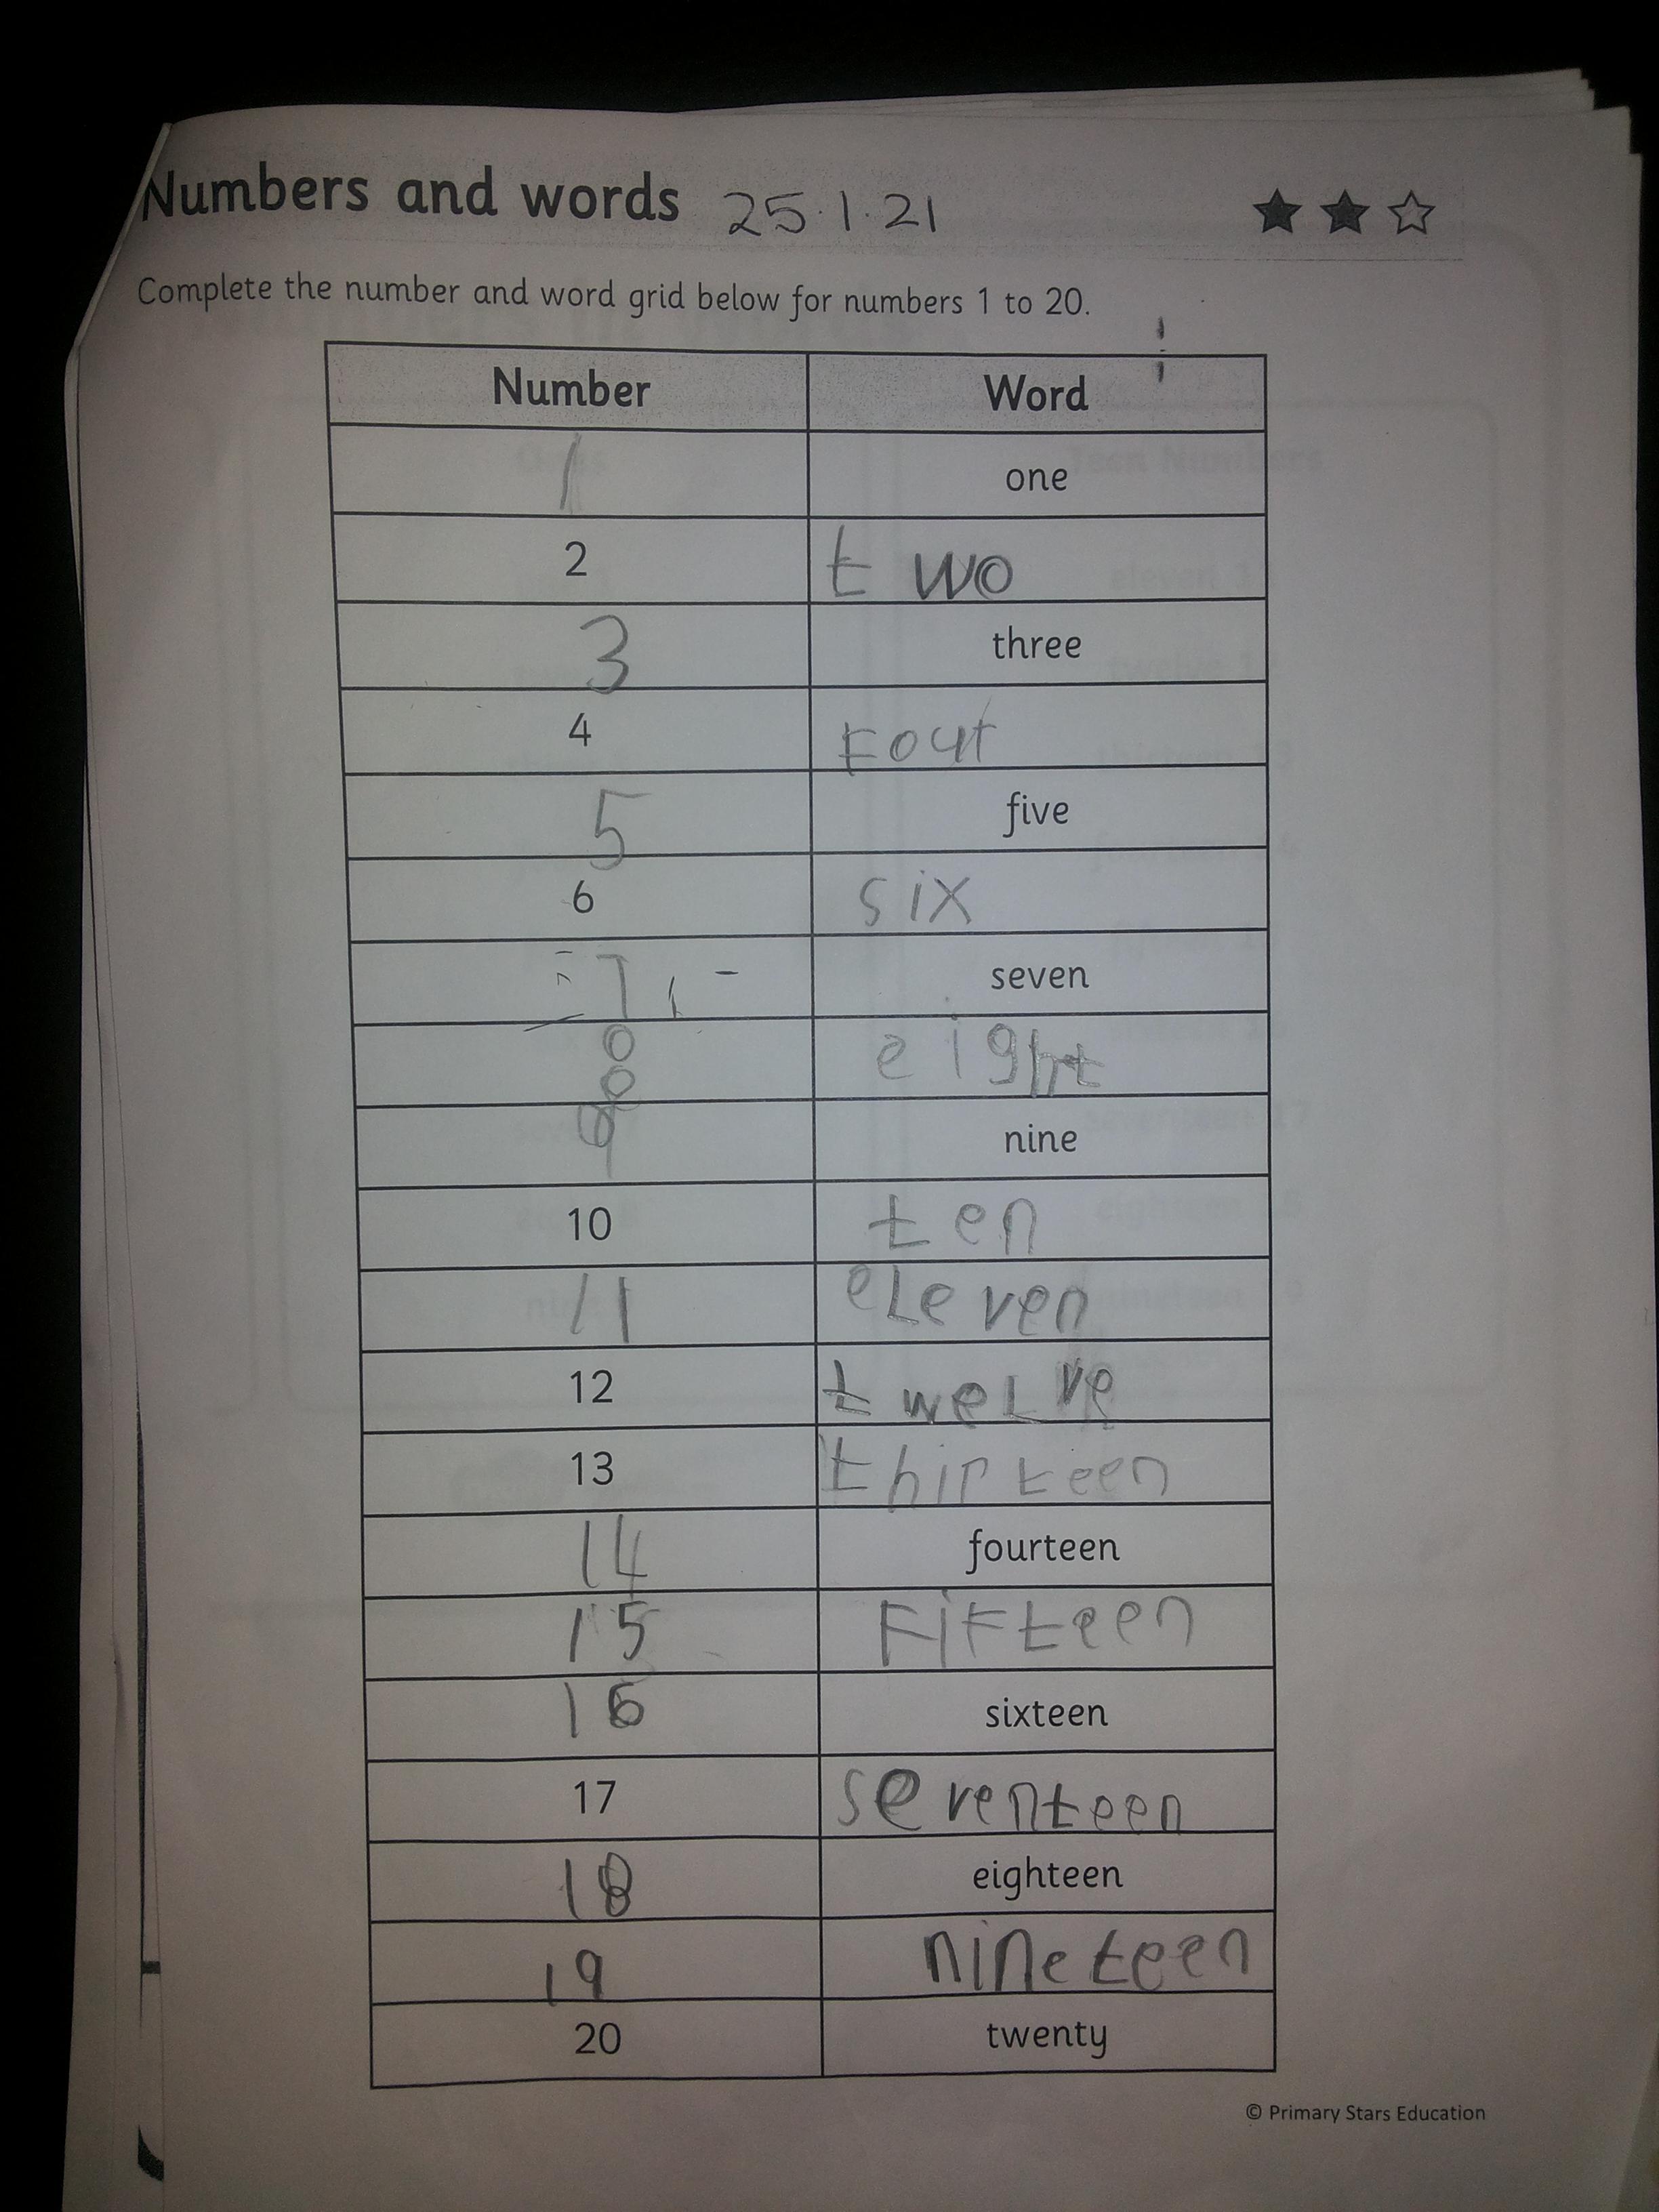 Numbers and words 25.1.21
Complete the number and word grid below for numbers 1 to 20.
Number Word
1 one
2 two
3 three
4 Four
5 five
6 six
7 seven
8 eight
9 nine
10 ten
11 eLeven
12 tweLve
13 thirteen
14 fourteen
15 FiFteen
16 sixteen
17 seventeen
18 eighteen
19 nineteen
20 twenty
© Primary Stars Education